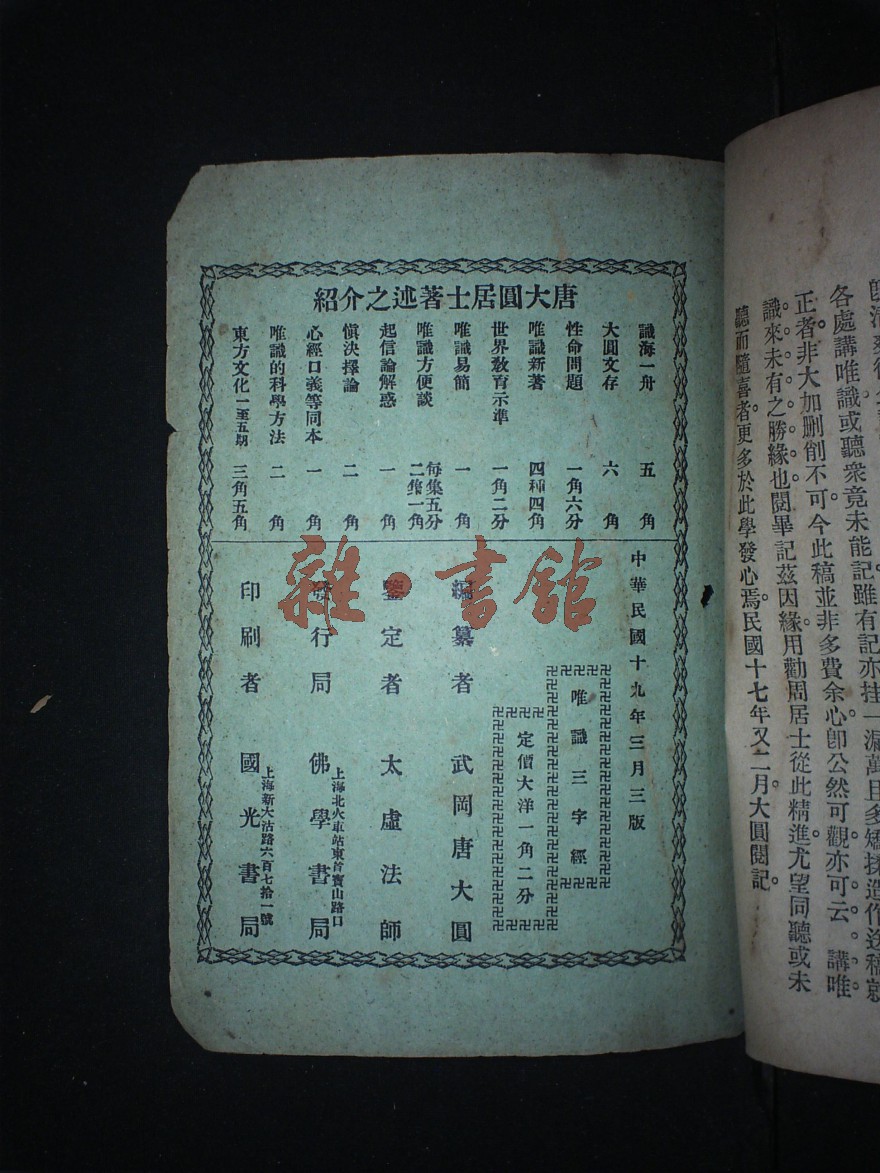 聽而隨喜者更多於此學發心焉。民國十七年又二月大圓閱記
識來未有之勝緣也。閱畢記茲因緣。用勸周居士從此精進。尤望同聽或未
正者。非大加刪削不可。今此稿並非多費余心。卽公然可觀。亦可云。講唯
各處講唯識。或聽衆竟未能記。雖有記亦挂一漏萬。且多矯揉造作。送稿就
唐大圓居士著述之介紹
識海一舟 五角
大圓文存 六角
性命問題 一角六分
唯識新著 四種四角
世界教育示準 一角二分
唯識易簡 一角
唯識方便談 每集五分 二集一角
起信論解惑 一角
愼決擇論 二角
心經口義等同本 一角
唯識的科學方法 二角
東方文化一至五期 三角五角
中華民國十九年三月三版
唯識三字經
定價大洋一角二分
編纂者 武岡唐大圓
鑒定者 太虛法師
發行局 上海北火車站東首寶山路口 佛學書局
印刷者 上海新大沽路六百七拾一號 國光書局
雜·書館